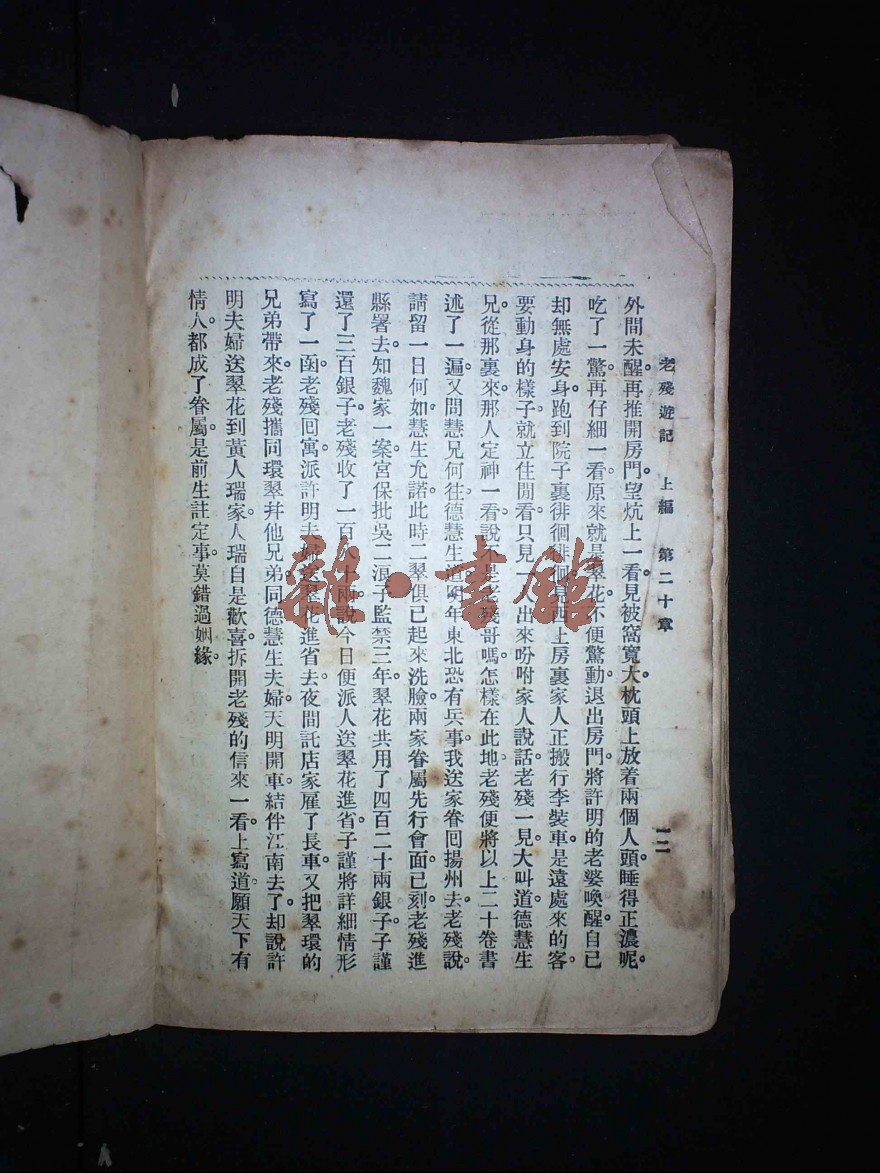 老殘遊記　上編　第二十章
一二
外間未醒。再推開房門。望炕上一看。見被窩寬大。枕頭上放着兩個人頭。睡得正濃呢。
吃了一驚。再仔細一看。原來就是翠花。不便驚動。退出房門。將許明的老婆喚醒。自己
却無處安身。跑到院子裏徘徊徘徊。見西上房裏家人正搬行李裝車。是遠處來的客
要動身的樣子。就立住閒看。只見一人出來吩咐家人說話。老殘一見。大叫道。德慧生
兄。從那裏來。那人定神一看。說不是老殘哥嗎。怎樣在此地。老殘便將以上二十卷書
述了一遍。又問慧兄何往。德慧生道。明年東北恐有兵事。我送家眷囘揚州去。老殘說。
請留一日何如。慧生允諾。此時二翠俱已起來洗臉。兩家眷屬先行會面。巳刻。老殘進
縣署去。知魏家一案。宮保批吳二浪子監禁三年。翠花共用了四百二十兩銀子。子謹
還了三百銀子。老殘收了一百八十兩。說今日便派人送翠花進省。子謹將詳細情形
寫了一函。老殘囘寓。派許明夫婦送翠花進省去。夜間託店家雇了長車。又把翠環的
兄弟帶來。老殘攜同環翠幷他兄弟。同德慧生夫婦。天明開車。結伴江南去了。却說許
明夫婦送翠花到黃人瑞家。人瑞自是歡喜。拆開老殘的信來一看。上寫道願天下有
情人。都成了眷屬。是前生註定事。莫錯過姻緣。
雜·書館